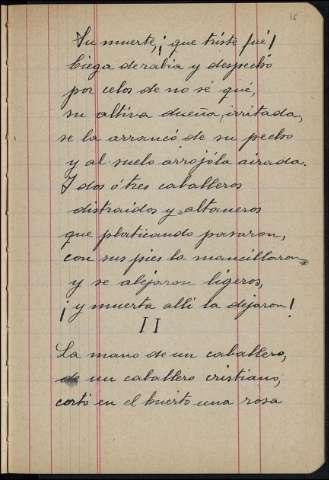 15
Su muerte, ¡que triste fué!
Ciega de rabia y despecho
por celos de no sé qué,
su altiva dueña, irritada,
se la arrancó de su pecho
y al suelo arrojóla airada.
Y dos ó tres caballeros
distraidos y altaneros
que platicando pasaron,
con sus pies la mancillaron
y se alejaron ligeros,
¡y muerta alli la dejaron!
II
La mano de un caballero,
de un caballero cristiano,
cortó en el huerto una rosa